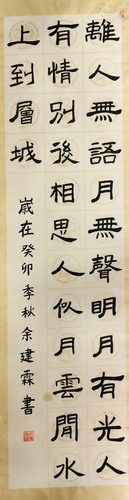 離人無語月無聲明月有光人
有情別後相思人似月雲間水
上到層城
歲在癸卯季秋余建霖書